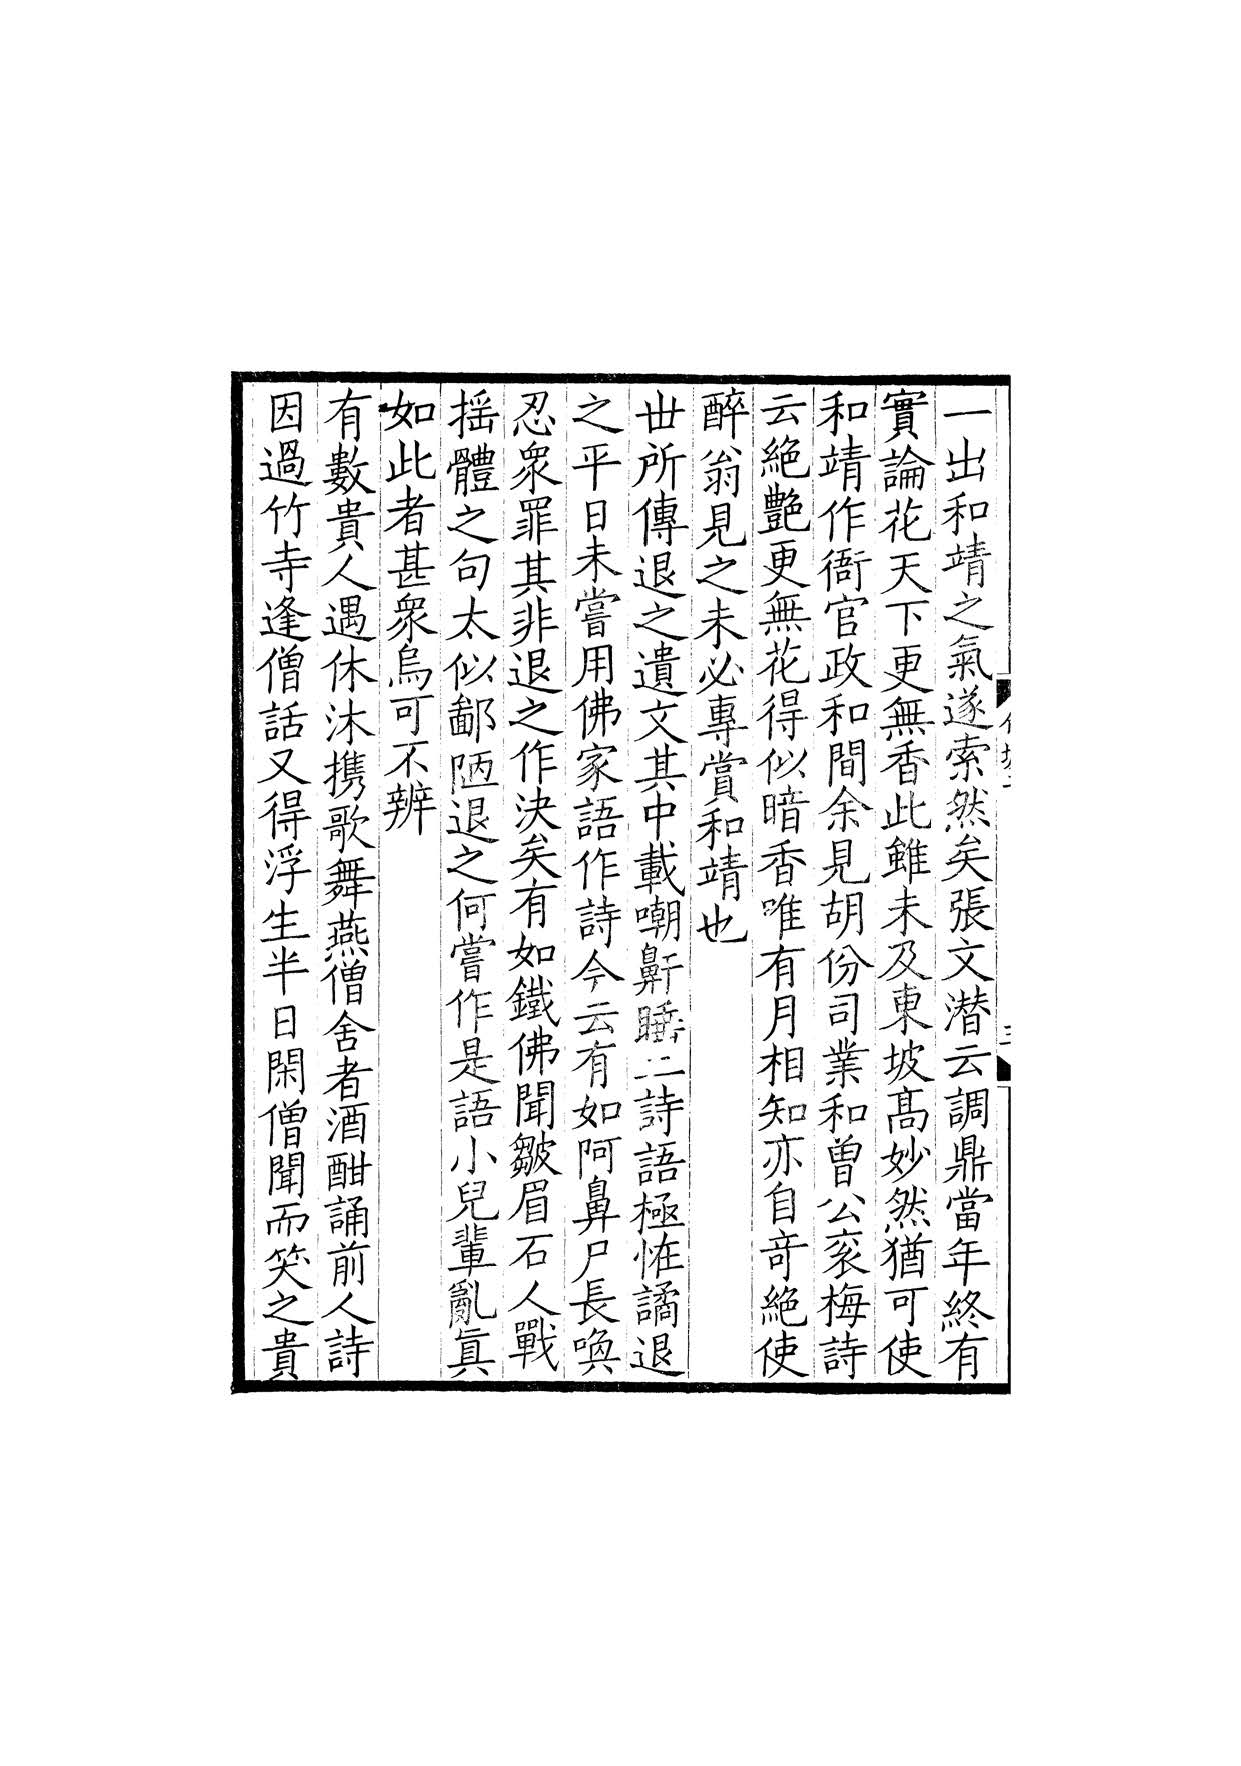 一出和靖之氣遂索然矣張文潜云調鼎當年終有
實論花天下更無香此雖未及東坡髙妙然猶可使
和靖作衙官政和間余見胡份司業和曾公衮梅詩
云絕艷更無花得似暗香唯有月相知亦自竒絕使
醉翁見之未必專賞和靖也
丗所傳退之遺文其中載嘲鼾睡二詩語極恠譎退
之平日未嘗用佛家語作詩今云有如阿鼻尸長喚
忍衆罪其非退之作決矣有如鐵佛聞皺眉石人戰
揺體之句太似鄙陋退之何嘗作是語小兒輩亂真
如此者甚衆烏可不辨
有數貴人遇休沐攜歌舞燕僧舍者酒酣誦前人詩
因過竹寺逢僧話又得浮生半日閑僧聞而笑之貴